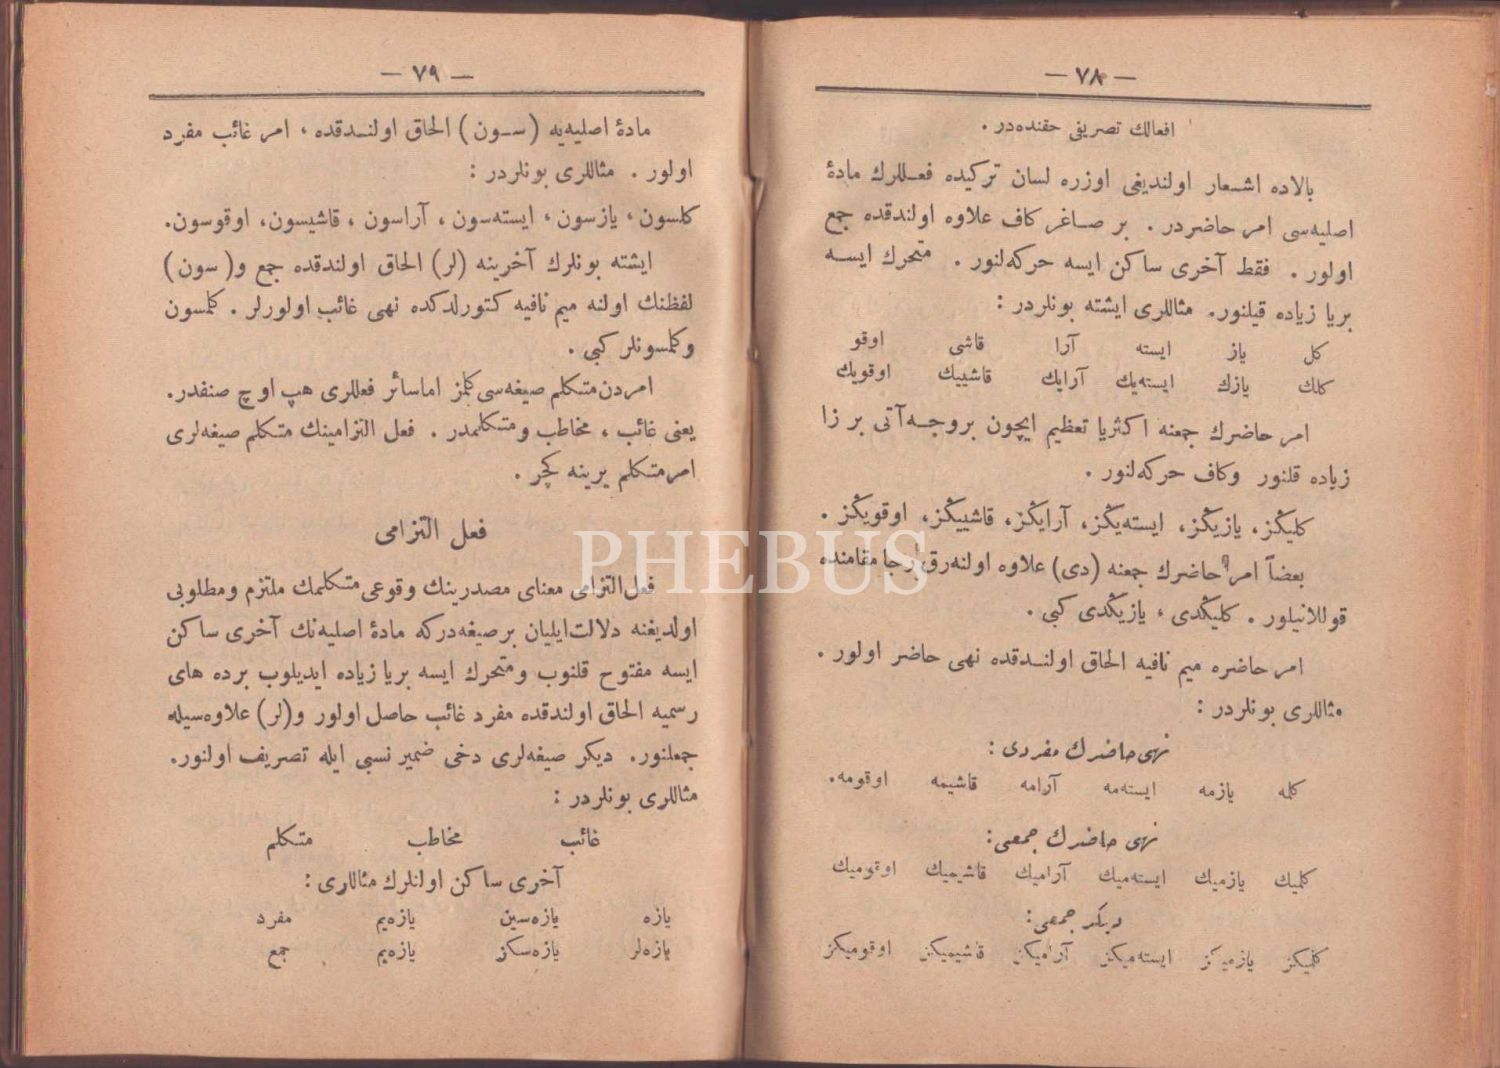 — ٧٨ —
افعالك تصريفى حقنده‌در .
بالاده اشعار اولنديغى اوزره لسان تركيده فعللرك مادۀ
اصليه‌سى امر حاضردر . بر صاغر كاف علاوه اولندقده جمع
اولور . فقط آخرى ساكن ايسه حركه‌لنور . متحرك ايسه
بريا زياده قيلنور. مثاللرى ايشته بونلردر :
كل ياز ايسته آرا قاشى اوقو
كلك يازك ايسته‌يك آرايك قاشييك اوقويك
امر حاضرك جمعنه اكثريا تعظيم ايچون بروجه‌آتى بر زا
زياده قلنور وكاف حركه‌لنور .
كليڭز، يازيڭز، ايسته‌يڭز، آرايڭز، قاشييڭز، اوقويڭز .
بعضاً امر حاضرك جمعنه (دى) علاوه اولنه‌رق رجا مقامنده
قوللانيلور . كليڭدى ، يازيڭدى كبى .
امر حاضره ميم نافيه الحاق اولندقده نهى حاضر اولور .
مثاللرى بونلردر :
نهى حاضرك مفردى :
كلمه يازمه ايسته‌مه آرامه قاشيمه اوقومه.
نهى حاضرك جمعى:
كلميك يازميك ايسته‌ميك آراميك قاشيميك اوقوميك
ديكر جمعى:
كلميكز يازميكز ايسته‌ميكز آراميكز قاشيميكز اوقوميكز
— ٧٩ —
مادۀ اصليه‌يه (سون) الحاق اولندقده ، امر غائب مفرد
اولور . مثاللرى بونلردر :
كلسون ، يازسون ، ايسته‌سون ، آراسون ، قاشيسون، اوقوسون.
ايشته بونلرك آخرينه (لر) الحاق اولندقده جمع و(سون)
لفظنك اولنه ميم نافيه كتورلدكده نهى غائب اولورلر . كلمسون
وكلمسونلر كبى .
امردن متكلم صيغه‌سى كلمز اما سائر فعللرى هپ اوچ صنفدر.
يعنى غائب ، مخاطب و متكلمدر . فعل التزامينك متكلم صيغه‌لرى
امر متكلم يرينه كچر .
فعل التزامى
فعل التزامى معناى مصدرينك وقوعى متكلمك ملتزم ومطلوبى
اولديغنه دلالت ايليان برصيغه‌دركه مادۀ اصليه‌نك آخرى ساكن
ايسه مفتوح قلنوب ومتحرك ايسه بريا زياده ايديلوب برده هاى
رسميه الحاق اولندقده مفرد غائب حاصل اولور و(لر) علاوه‌سيله
جمعلنور. ديكر صيغه‌لرى دخى ضمير نسبى ايله تصريف اولنور.
مثاللرى بونلردر :
غائب مخاطب متكلم
آخرى ساكن اولنلرك مثاللرى :
يازه يازه‌سين يازه‌يم مفرد
يازه‌لر يازه‌سكز يازه‌يم جمع
PHEBUS